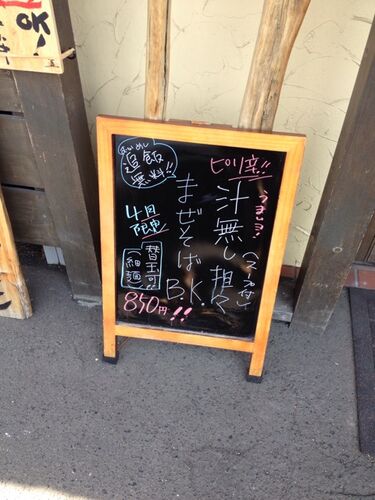 OK!
ピリ辛!!
うまいヨ!
汁無し担々
まぜそば
B.K.
おいめし
追飯
無料!!
4月
限定
替玉可
細麺
850円!!